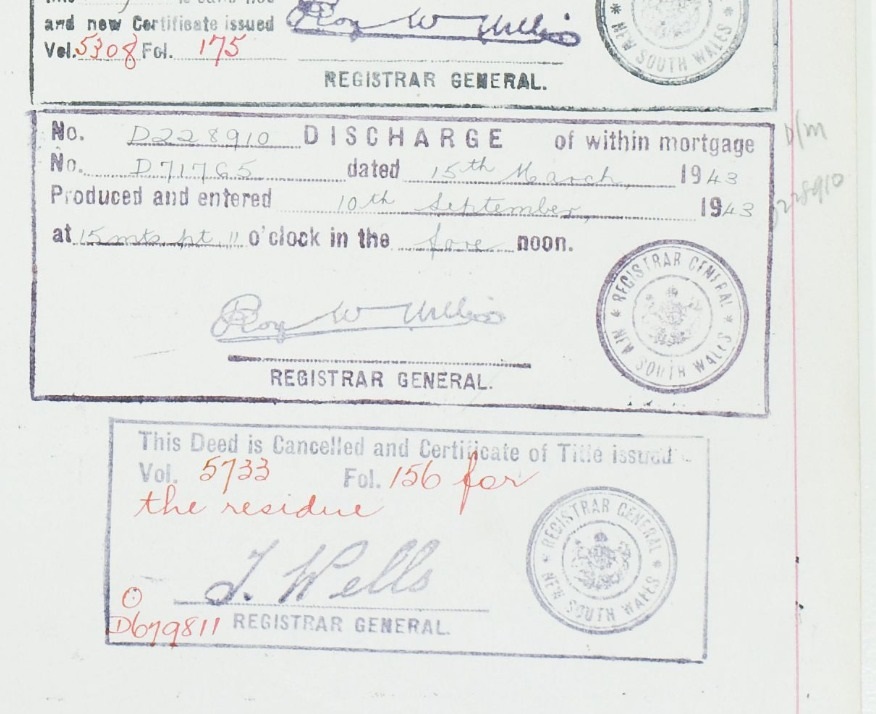 and new Certificate issued
Vol. 5308 Fol. 175
Roy W Willis
REGISTRAR GENERAL.
NEW SOUTH WALES
No. D228910 DISCHARGE of within mortgage
No. D71765 dated 15th March 1943
Produced and entered 10th September, 1943
at 15 mts pt 11 o'clock in the fore noon.
D/M
D228910
REGISTRAR GENERAL
NEW SOUTH WALES
Roy W Willis
REGISTRAR GENERAL.
This Deed is Cancelled and Certificate of Title issued
Vol. 5733 Fol. 156 for
the residue
REGISTRAR GENERAL
NEW SOUTH WALES
J. Wells
O
D679811 REGISTRAR GENERAL.